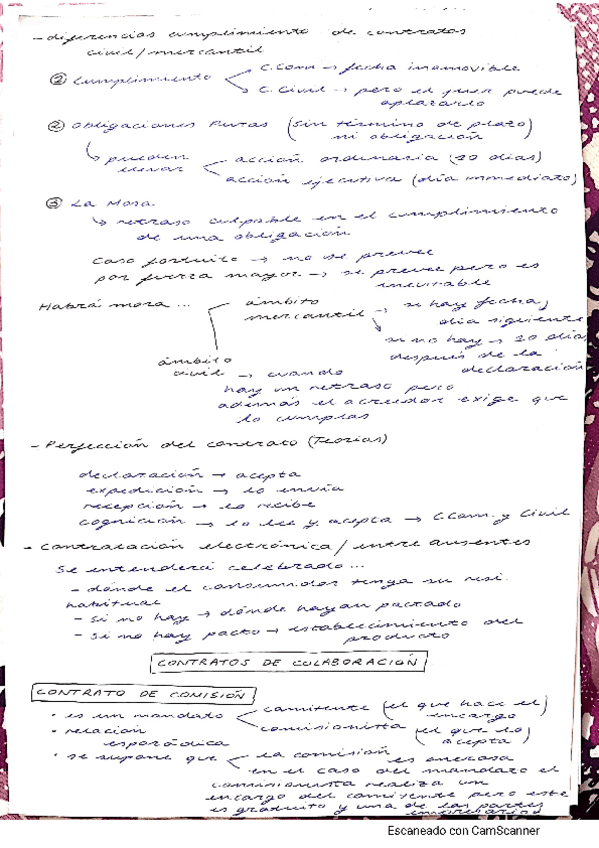 - diferencias cumplimiento de contratos
civil/mercantil
① Cumplimiento
C.Com → fecha inamovible
C. Civil → pero el juez puede
aplazarlo
② Obligaciones Puras (sin término de plazo)
ni obligación
↳ pueden
llevar
acción ordinaria (10 días)
acción ejecutiva (día inmediato)
③ La Mora
↳ retraso culpable en el cumplimiento
de una obligación
caso fortuito → no se prevee
por fuerza mayor → se prevee pero es
inevitable
Habrá mora ...
ámbito
mercantil
si hay fecha,
día siguiente
si no hay → 10 días
después de la
declaración
ámbito
civil → cuando
hay un retraso pero
además el acreedor exige que
lo cumplas
- Perfección del contrato (Teorías)
declaración → acepta
expedición → lo envía
recepción → lo recibe
cognición → lo lee y acepta → C.Com. y Civil
- Contratación electrónica / entre ausentes
se entenderá celebrado...
- dónde el consumidor tenga su resi.
habitual
- si no hay → dónde hayan pactado
- si no hay pacto → establecimiento del
producto
CONTRATOS DE COLABORACIÓN
CONTRATO DE COMISIÓN
• es un mandato
comitente (el que hace el)
encargo
comisionista (el que lo)
acepta
• relación
esporádica
• se supone que
la comisión
es onerosa
en el caso del mandato el
comisionista realiza un
encargo del comitente pero este
es gratuito y una de las partes
Escaneado con CamScanner